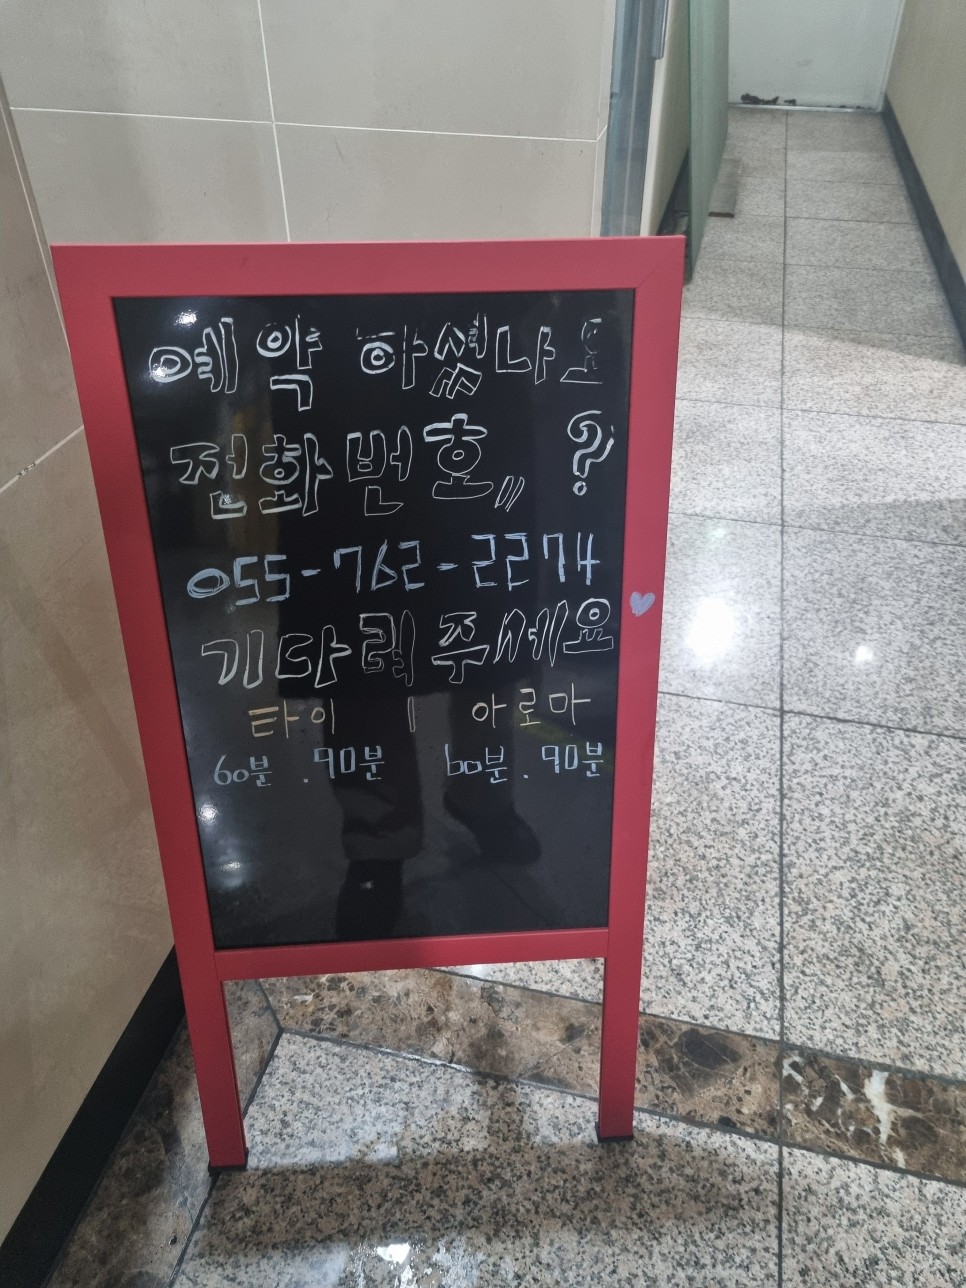 예약 하셨나요
전화번호,, ?
055-762-2274
기다려 주세요
타이 | 아로마
60분 . 90분 60분 . 90분